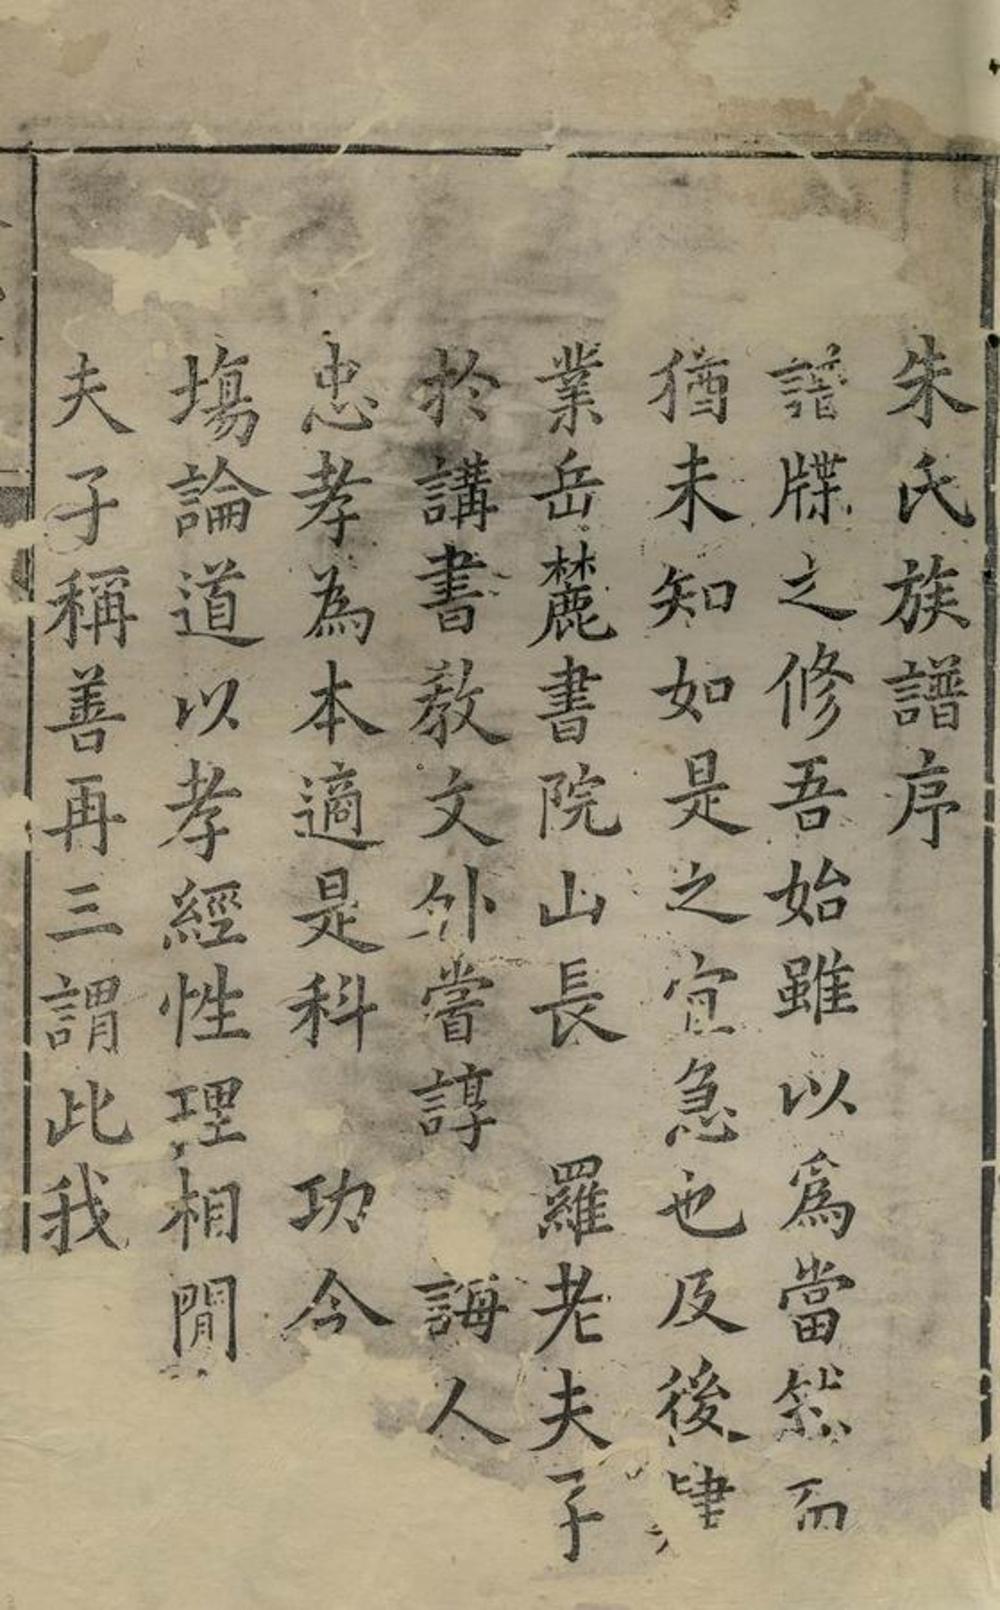 朱氏族譜序
譜牒之修吾始雖以爲當然而
猶未知如是之宜急也及後肄
業岳麓書院山長羅老夫子
於講書教文外嘗諄誨人
忠孝為本適是科功令
塲論道以孝經性理相間
夫子稱善再三謂此我